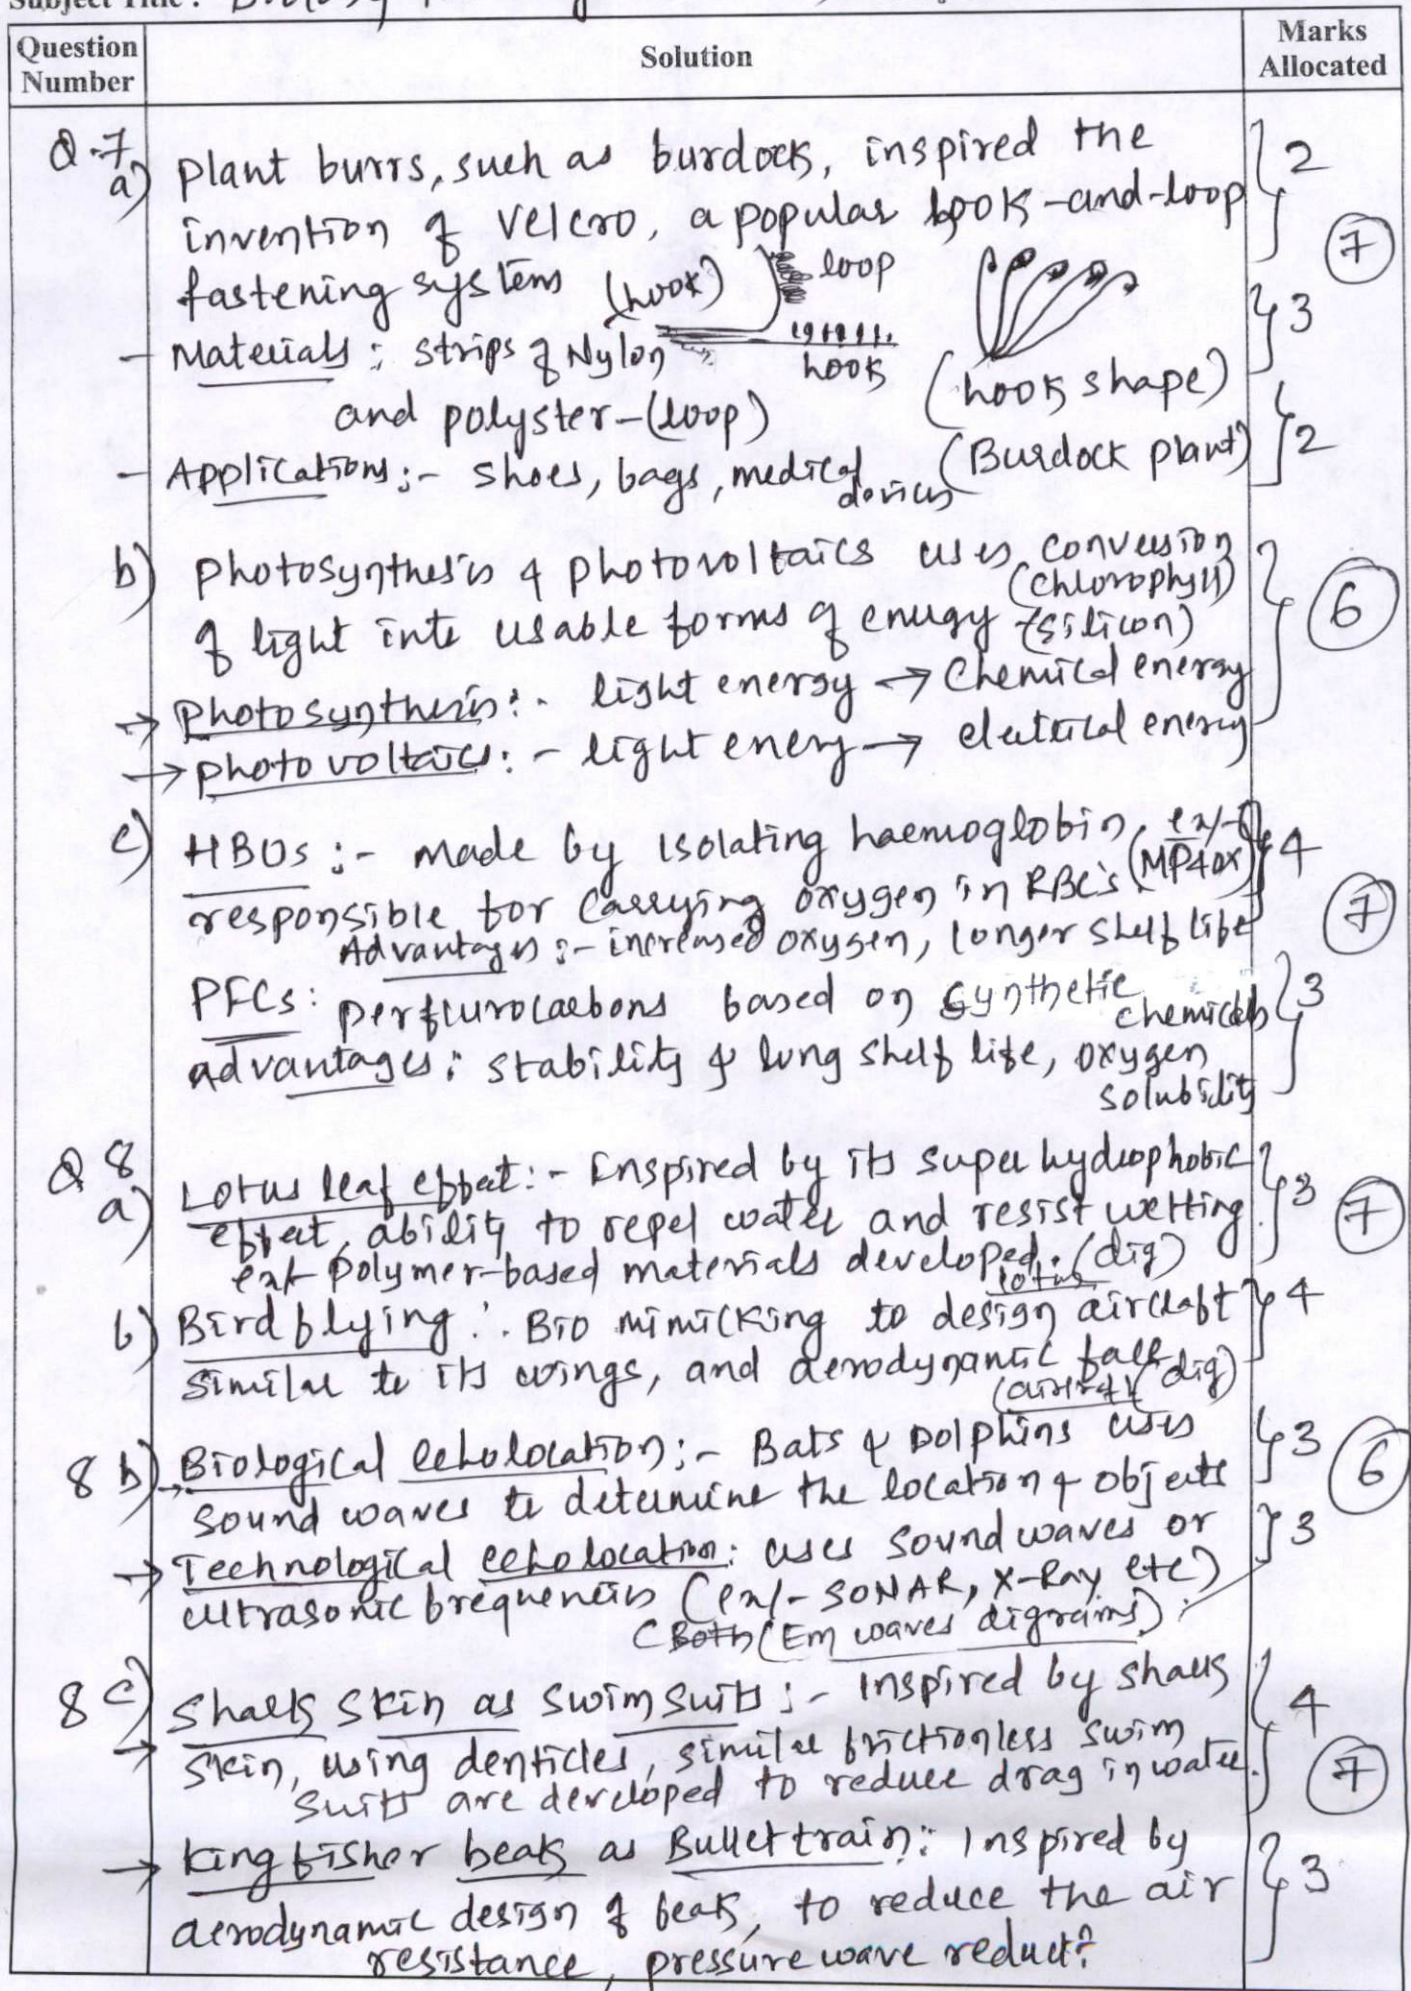 Subject Title :
Question Number
Solution
Marks Allocated
Q.7
a) Plant burrs, such as burdock, inspired the } 2
invention of Velcro, a popular hook-and-loop (7)
fastening system (hook) loop } 3
- Materials : strips of Nylon hook (hook shape)
and polyster-(loop)
- Applications :- shoes, bags, medical devices (Burdock plant) } 2
b) Photosynthesis & photovoltaics uses conversion
(chlorophyll)
of light into usable forms of energy (silicon) } (6)
→ Photosynthesis :- light energy → Chemical energy
→ photovoltaics : - light energy → electrical energy
c) HBOs :- made by isolating haemoglobin, ex/-
responsible for carrying oxygen in RBC's (MP4OX) } 4
Advantages :- increased oxygen, longer shelf life (7)
PFCs : perflurocarbons based on synthetic chemicals } 3
advantages : stability & long shelf life, oxygen
solubility
Q 8
a) Lotus leaf effect :- Inspired by its super hydrophobic
effect, ability to repel water and resist wetting. } 3 (7)
ex/- polymer-based materials developed. (dig)
lotus
b) Bird flying : Bio mimicking to design aircraft } 4
similar to its wings, and aerodynamic
(aircraft) (dig)
8 b) → Biological echolocation :- Bats & Dolphins uses } 3 (6)
sound waves to determine the location & objects
→ Technological echolocation : uses sound waves or } 3
ultrasonic frequencies (ex/- SONAR, X-Ray etc)
(Both (Em waves digrams)
8 c)
→ Shark skin as swim suits :- Inspired by sharks } 4
skin, using denticles, similar frictionless swim
suits are developed to reduce drag in water. (7)
→ king fisher beak as Bullet train : Inspired by
aerodynamic design of beak, to reduce the air } 3
resistance, pressure wave reduct?